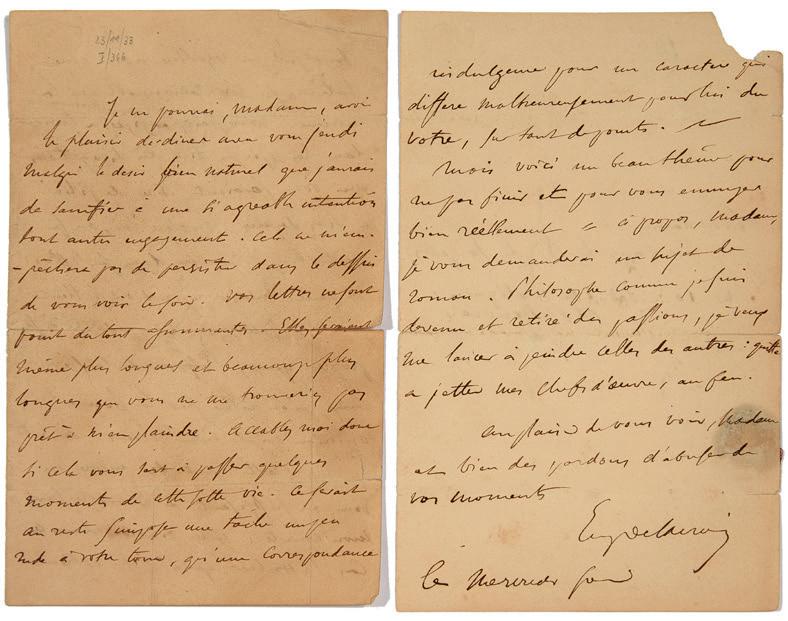 23/11/33
I/366
Je ne pourrai, madame, avoir
le plaisir de diner avec vous jeudi
malgré le desir bien naturel que j'aurais
de sacrifier à une si agreable intention
tout autre engagement. Cela ne m'em-
-pêchera pas de persister dans le dessein
de vous voir le soir. Vos lettres ne sont
point du tout assommantes. Elles seraient
même plus longues et beaucoup plus
longues que vous ne me trouveriez pas
prêt à m'en plaindre. Accablez moi donc
si cela vous sert à passer quelques
moments de cette sotte vie. Ce serait
au reste s'imposer une tache un peu
rude à votre tour, qu'une correspondance
indulgence pour un caractere qui
differe malheureusement pour lui du
votre, sur tant de points.
Mais voici un beau thême pour
ne pas finir et pour vous ennuyer
bien réellement = à propos, madame,
je vous demanderai un sujet de
roman. Philosophe comme je suis
devenu et retiré des passions, je veux
me lancer à peindre celles des autres : quitte
a jetter mes chefs d'œuvre, au feu.
Au plaisir de vous voir, Madame
et bien des pardons d'abuser de
vos moments
Eug Delacroix
Ce Mercredi soir